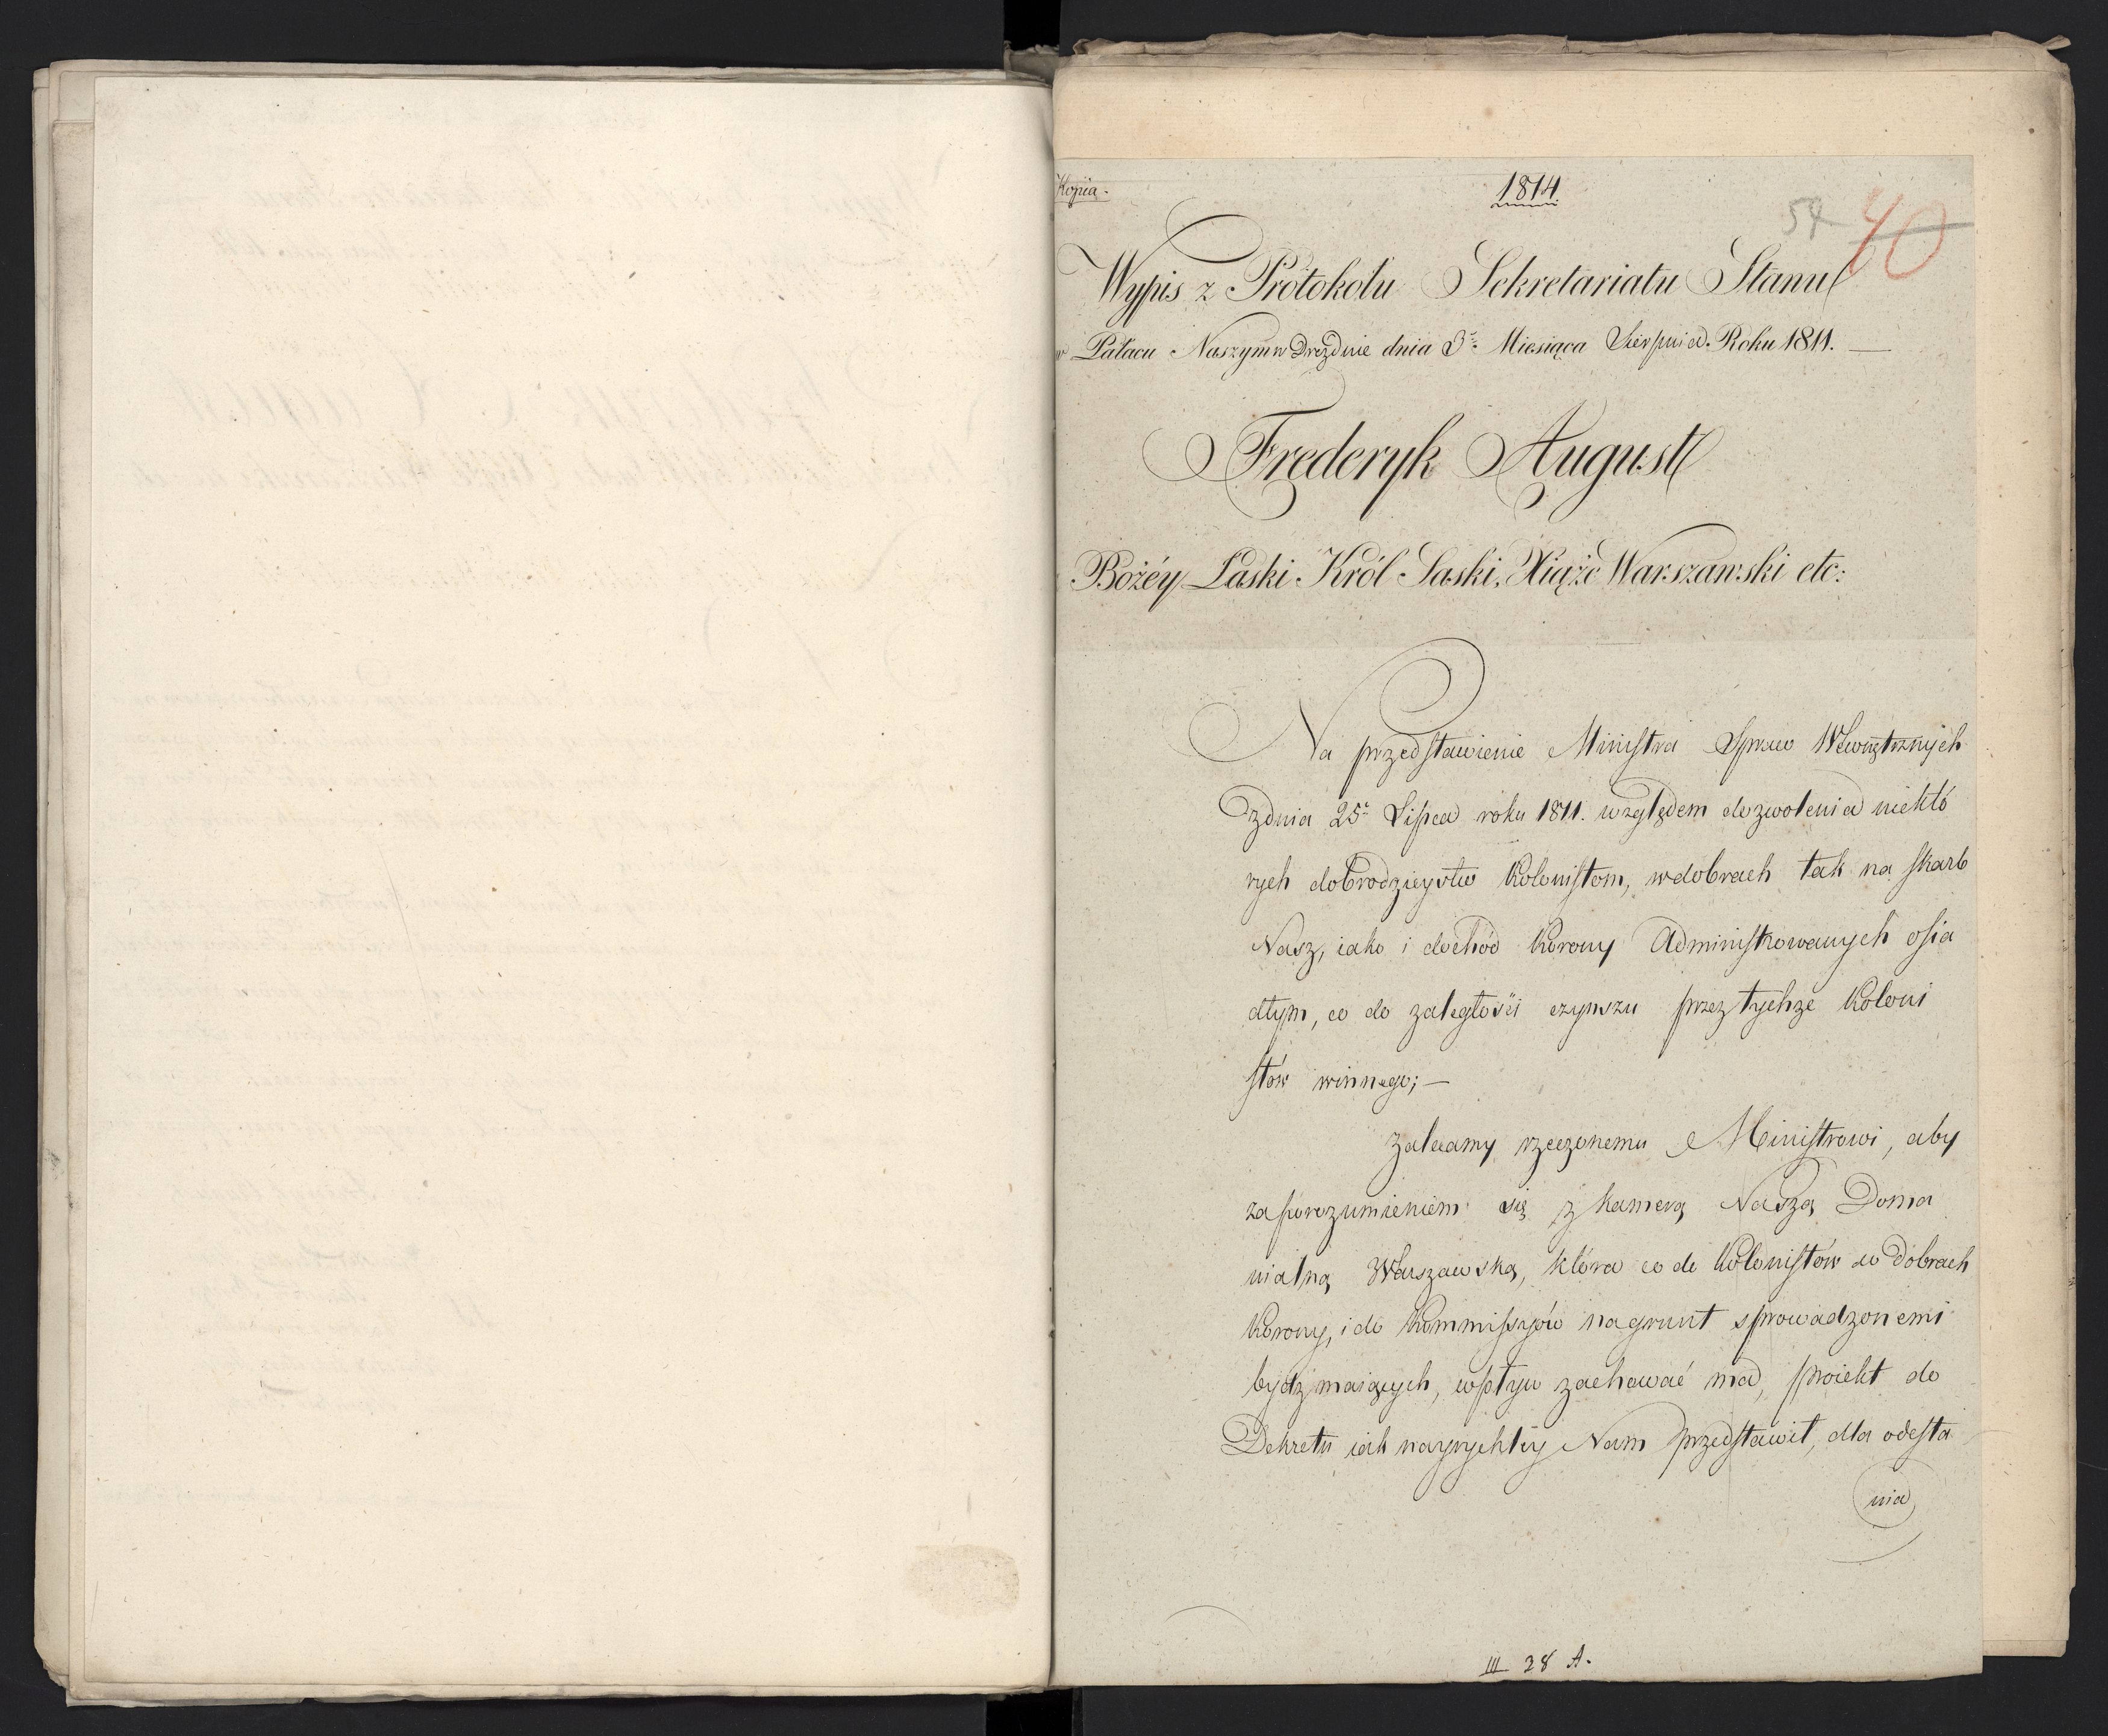 Kopia.
1814
54 40
Wypis z Protokołu Sekretariatu Stanu
w Pałacu Naszym w Dreźnie dnia 3º Miesiąca Sierpnia Roku 1811.
Frederyk August
Bożéy Łaski Król Saski, Xiąże Warszawski etc:
Na przedstawienie Ministra Spraw Wewnętrznych
z dnia 25º Lipca roku 1811. względem dozwolenia niektó
rych dobrodzieystw Kolonistom, w dobrach tak na skarb
Nasz, iako i dochód Korony Administrowanych osia
dłym, co do zaległości czynszu przez tychże Koloni
stów winnego; —
Zalecamy rzeczonemu Ministrowi, aby
za porozumieniem się z Kamerą Naszą Doma
nialną Warszawską, która co do Kolonistów w Dobrach
Korony, i do Kommissyów na grunt sprowadzonemi
bydź maiących, wpływ zachować ma, proiekt do
Dekretu iak nayrychléy Nam przedstawił, dla odesła
nia
III 28 A.